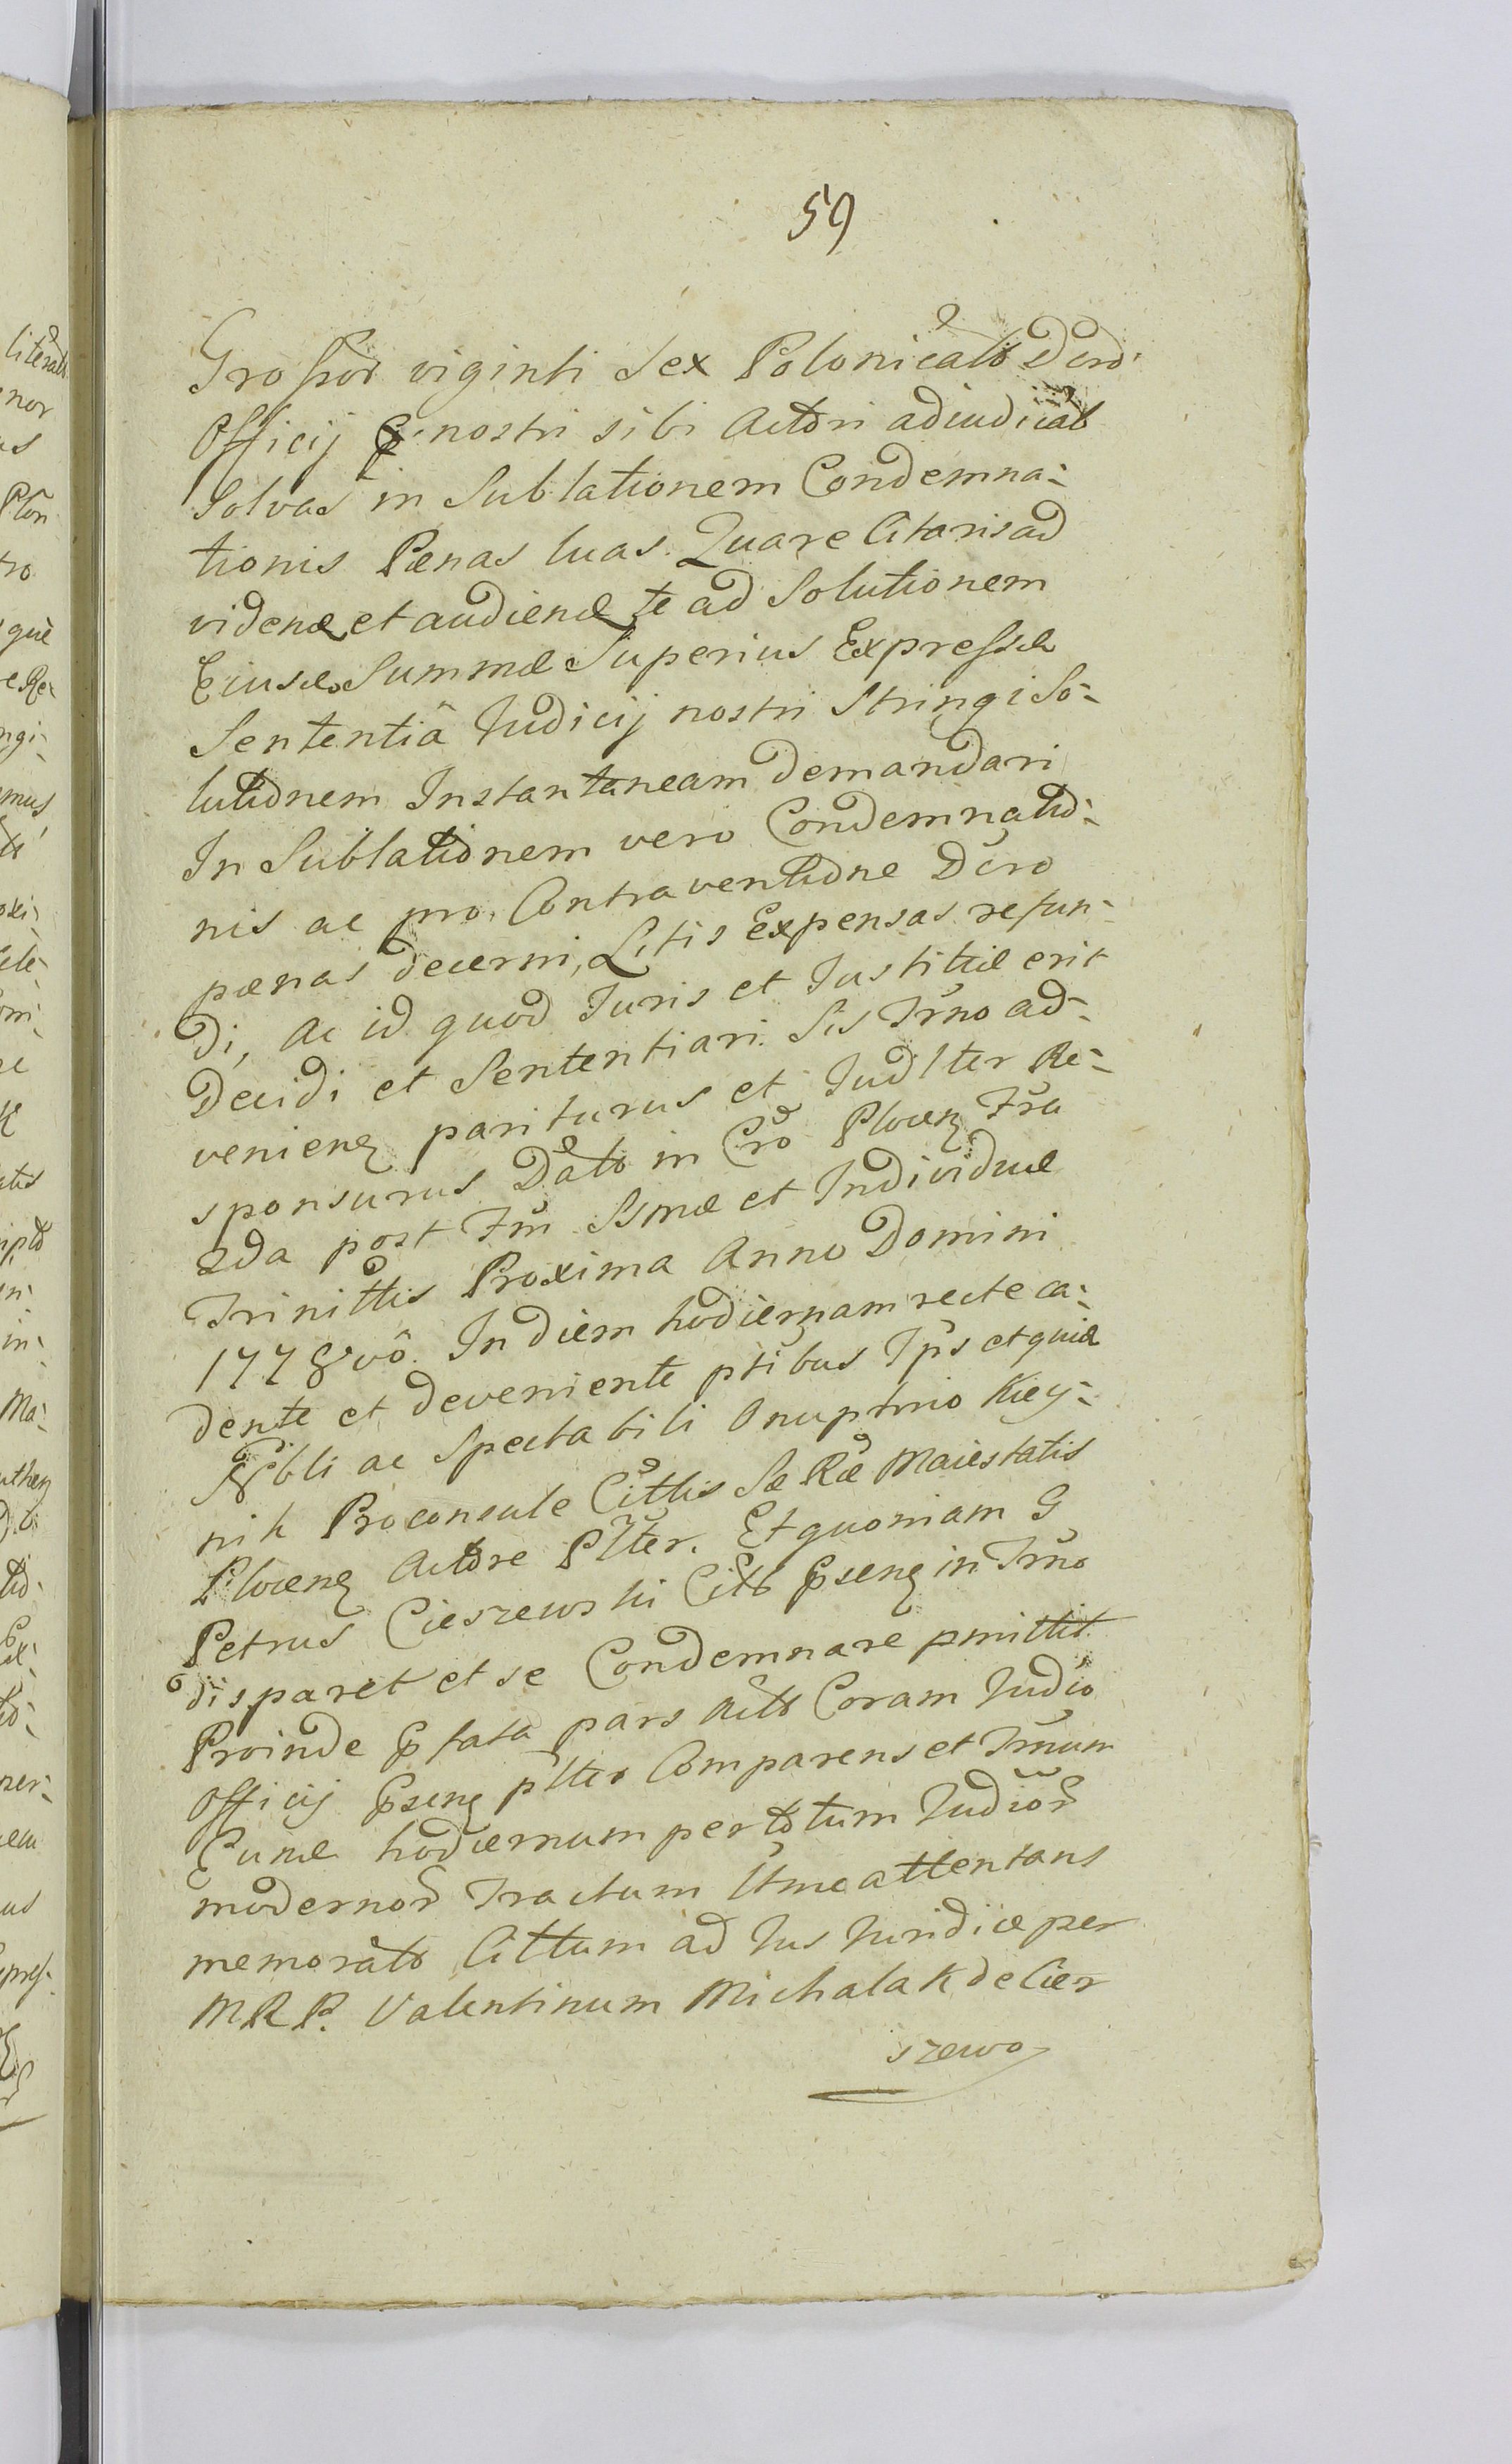 59
Grossor viginti Sex Polonicalt Dcro
Officij nostri sibi Actori adiudicat
Solvas in Sublationem Condemna:
tionis Pænas luas. Quare Citaris ad
videnđ et audienđ te ad Solutionem
Eiusđ Summæ Superius Expressæ
Sententiâ Judicij nostri Stringi So:
lutionem Instantaneam Demandari
In Sublationem vero Condemnatio:
nis ac pro Contraventione Dcro
pænas decerni, Litis Expensas refun:
di, Ac id quod Juris et Justitiæ erit
Decidi et Sententiari. Sis Trno ad:
venienę pariturus et Judlter Re:
sponsurus Datt in Cro Plocenę Fra
2da post Fm SSmæ et Individuæ
Trinittis Proxima Anno Domini
1778vô. In diem hodiernam recte ca:
dente et deveniente ptibus Ips et quiđ
Nbli ac Spectabili Onuphrio Kiey:
nik Proconsule Cittis Sæ Ræ Maiestatis
Plocenę Actore Plter. Et quoniam G
Petrus Cieszewski Citt Psenę in Trno
disparet et se Condemnare pmittit
Proinde Pfata pars Actt Coram Judio
Officij Psenę plter Comparens et Trnum
Eunđ hodiernum per totum Judior
modernor Tractum ltme attentans
memoratt Cittum ad Jus Juridice per
MRP. Valentinum Michalak de Cier
szewo